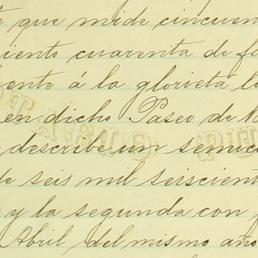 que mide cincuen
ciento cuarenta de f
ente á la glorieta l
en dicho Paseo de
describe un semic
de seis mil seiscient
y la segunda con
Abril del mismo año